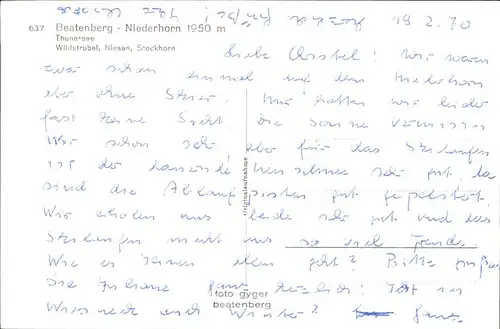 637 Beatenberg - Niederhorn 1950 m
Thunersee
Wildstrubel, Niesen, Stockhorn
19.2.70
Liebe Christel! Wir waren
zwar schon einmal auf dem Niederhorn
aber ohne Skier. Nur hatten wir leider
fast keine Sicht. Die Sonne vermissen
Wir schon sehr aber für das Skilaufen
ist der Neuschnee sehr gut, da
sind die Ablaufpisten gut gepolstert.
Wir erholen uns beide sehr gut und das
Skilaufen macht uns so viel Freude.
Wie es Ihnen allen geht? Bitte grüßen
Sie zuhause ganz herzlich! Ist in
auch Winter? ganz
herzliche Grüße! Ihre
Originalaufnahme
foto gyger
beatenberg